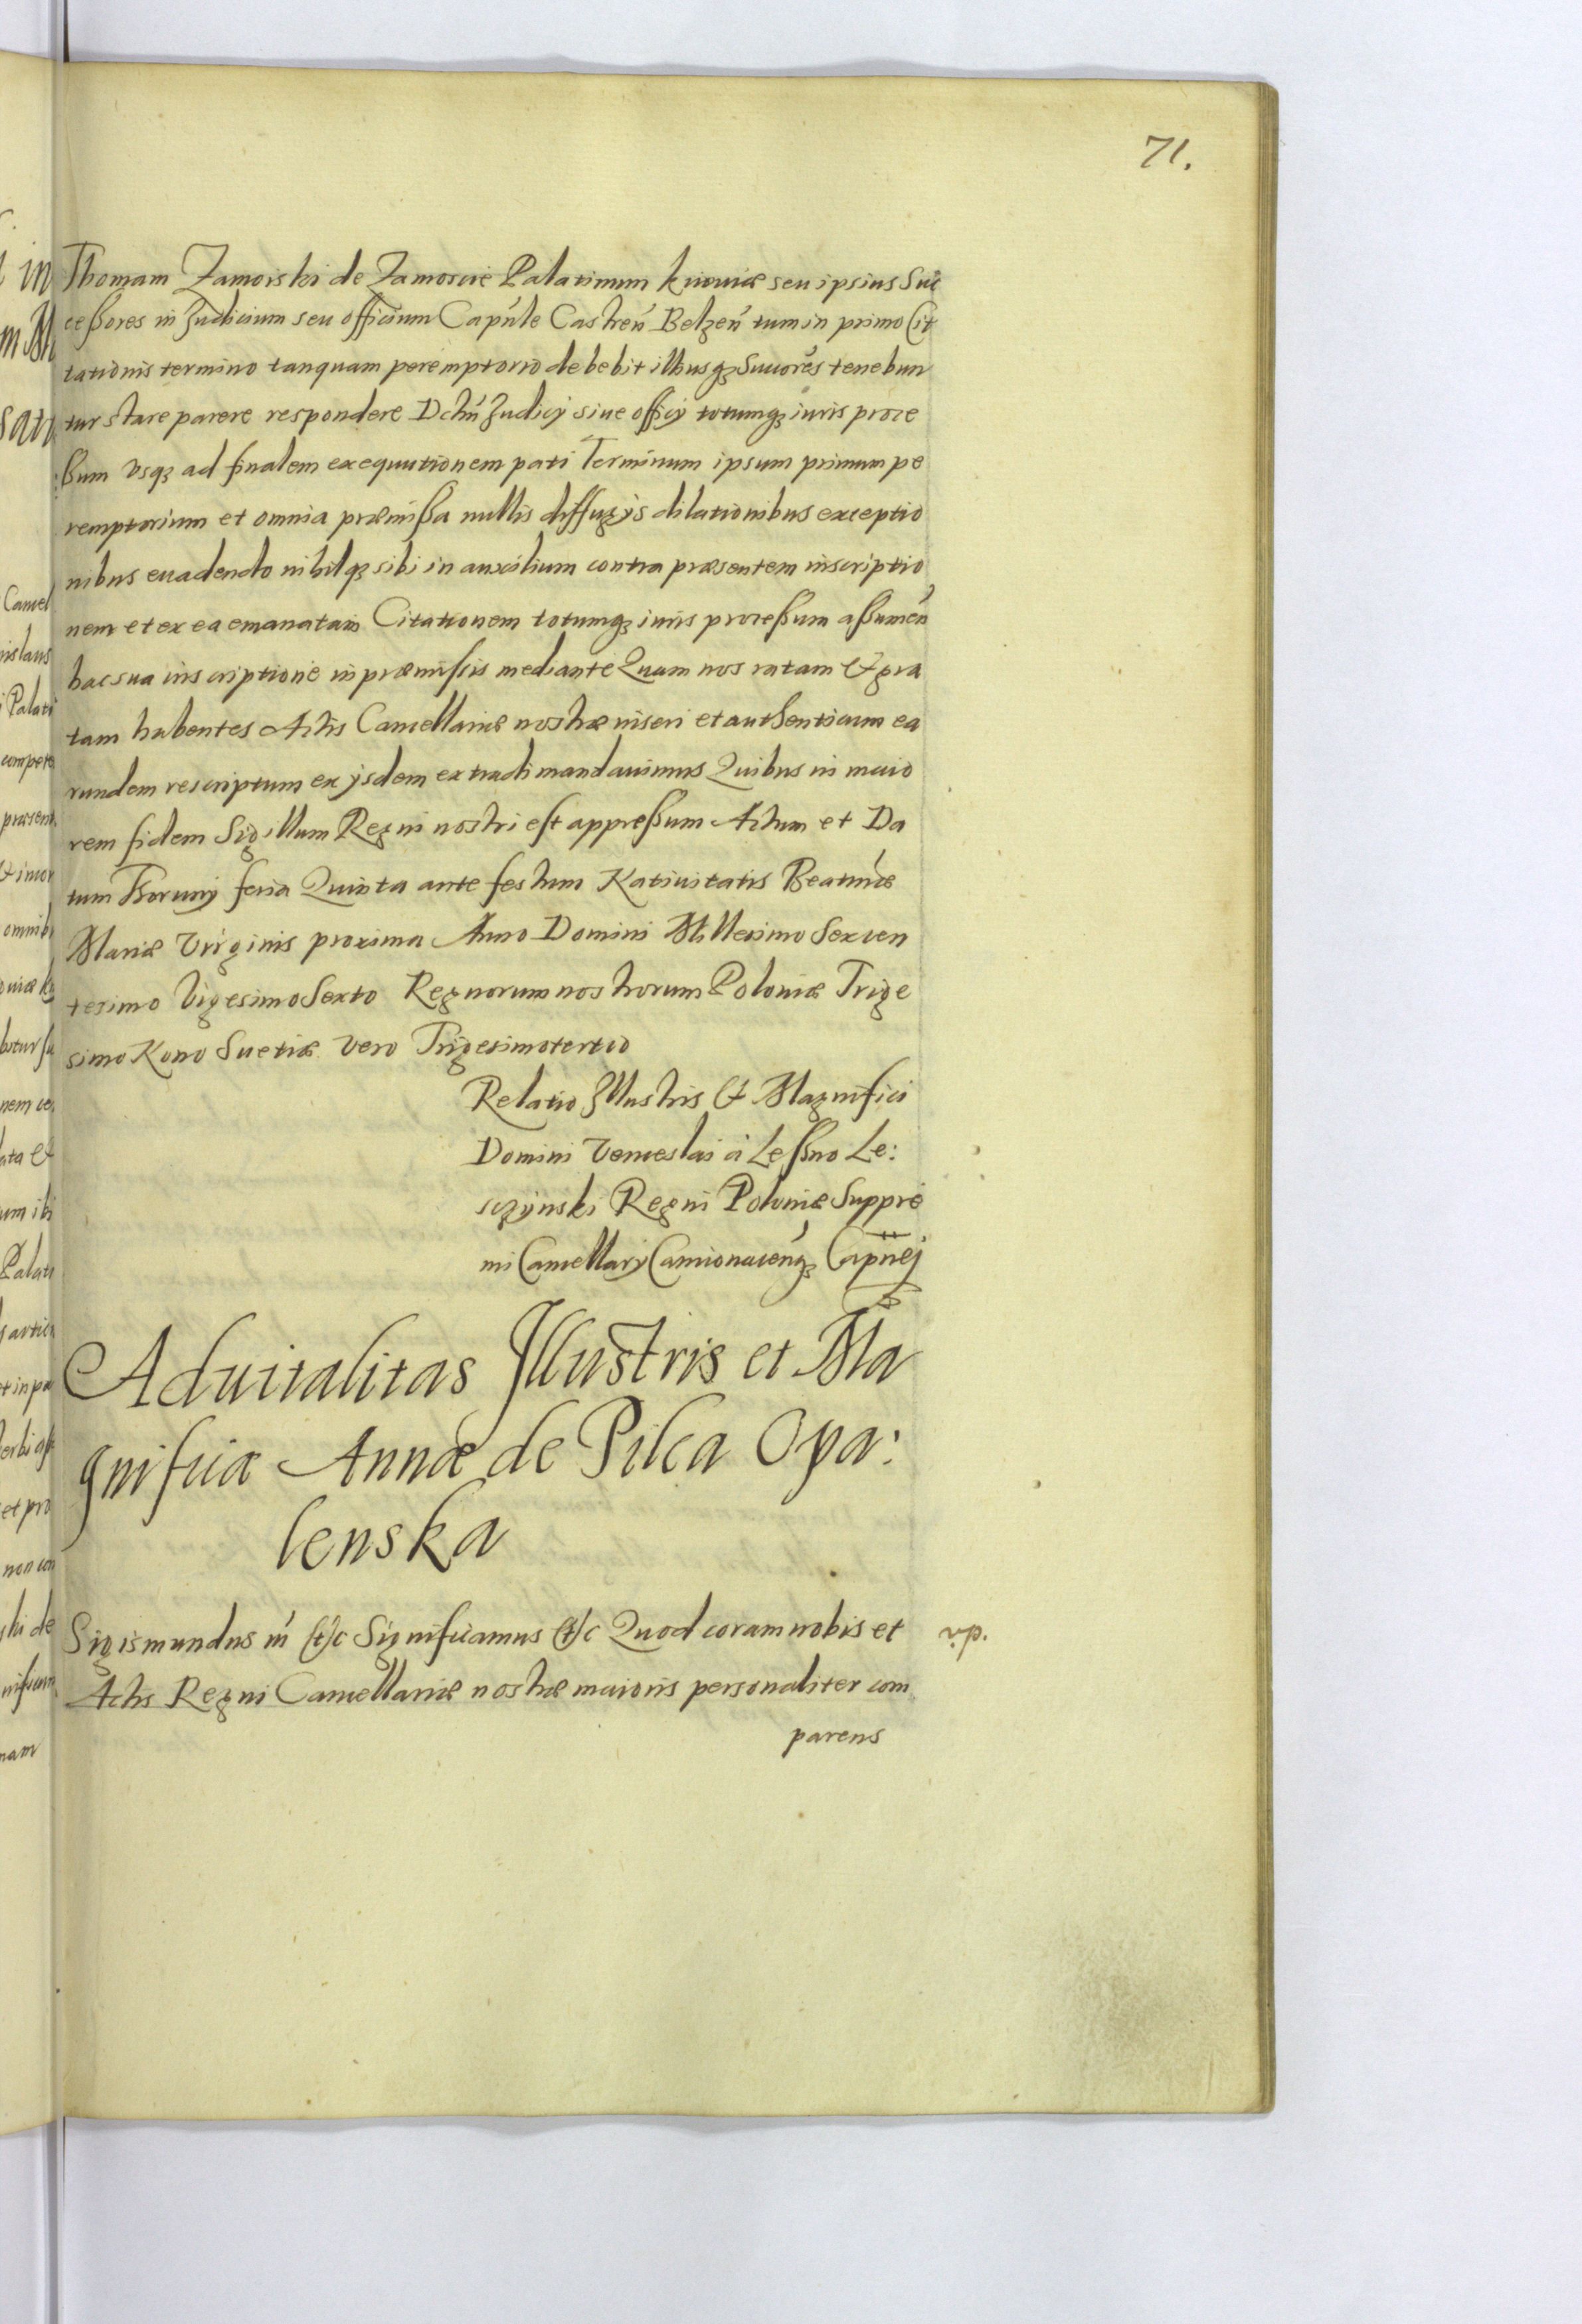 71.
Thomam Zamoiski de Zamoscie Palatinum kiiouiæ seu ipsius Suc
ceßores in Judicium seu officium Capnle Castren Belzen tum in primo Cit
tationis termino tanquam peremptorio debebit illiusqꝫ Succores tenebun
tur stare parere respondere Dctu Judicÿ siue officÿ totumqꝫ iuris proce
ßum vsqꝫ ad finalem exequutionem pati Terminum ipsum primum pe
remptorium et omnia præmißa nullis diffugÿs dilationibus exceptio
nibus euadendo nihilqꝫ sibi in auxilium contra præsentem inscriptio
nem et ex ea emanatam Citationem totumqꝫ iuris proceßum aßumen
hac sua inscriptione in præmissis mediante Quam nos ratam & gra
tam habentes Actis Cancellariæ nostræ inseri et authenticum ea
rundem rescriptum ex ÿsdem extradi mandauimus Quibus in maio
rem fidem Sigillum Regni nostri est appreßum Actum et Da
tum Thorunÿ feria Quinta ante festum Natiuitatis Beatmæ
Mariæ Virginis proxima Anno Domini Millesimo Sexcen
tesimo Vigesimo Sexto Regnorum nostrorum Poloniæ Trige
simo Nono Suetiæ vero Trigesimotertio
Relatio Illustris & Magnifici
Domini Venceslai a Leßno Le:
sczÿnski Regni Poloniæ Suppre
mi Cancellarÿ Camionacenqꝫ Capnej
Aduitalitas Illustris et Ma
gnificæ Annæ de Pilca Opa:
lenska
Sigismundus in (t)c Significamus (t)c Quod coram nobis et
Actis Regni Cancellariæ nostræ maioris personaliter com
parens